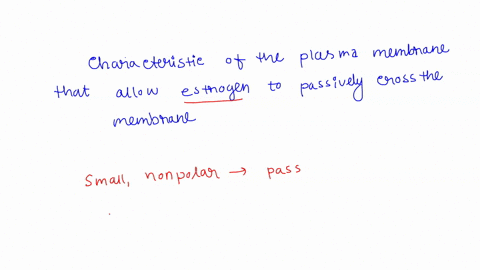 Characteristic of the plasma membrane
that allow estrogen to passively cross the
membrane
Small, nonpolar → pass